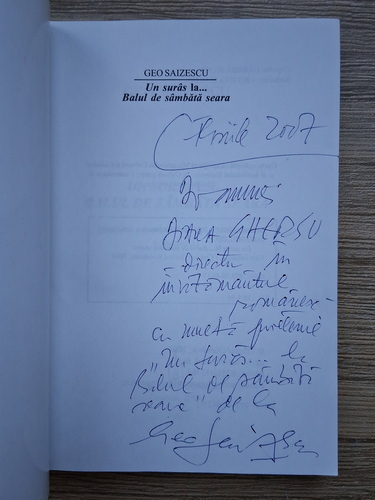 GEO SAIZESCU
Un surâs la...
Balul de sâmbătă seara
Aprilie 2007
D-amnei
GHERGU
Director în
învățământul
românesc
cu multă prietenie
„Un surâs... la
Balul de sâmbătă
seara" de la
Geo Saizescu